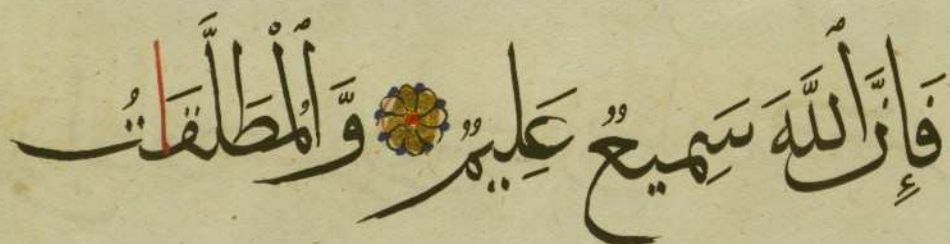 فَإِنَّ ٱللَّهَ سَمِيعٌ عَلِيمٌ وَّٱلْمُطَلَّقَاتُ